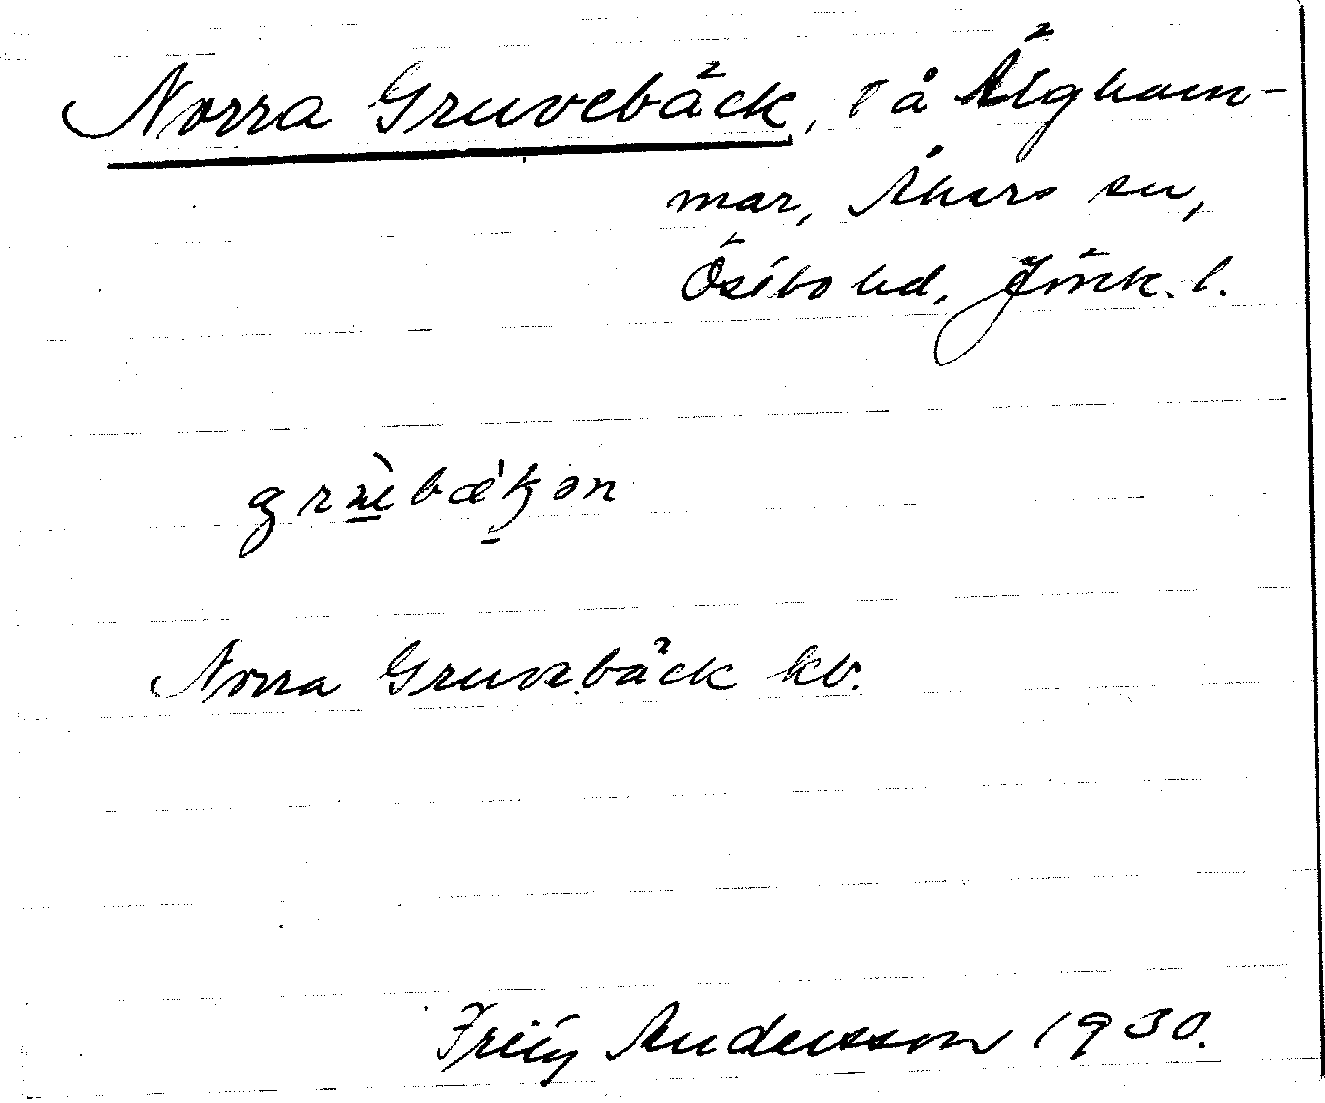 Norra Gruvebäck, T å Älgham-
mar, Åkers sn,
Östbo hd, Jönk. l.
grùbæ'ʞən
Norra Gruvebäck kv.
Fritz Andersson 1930.